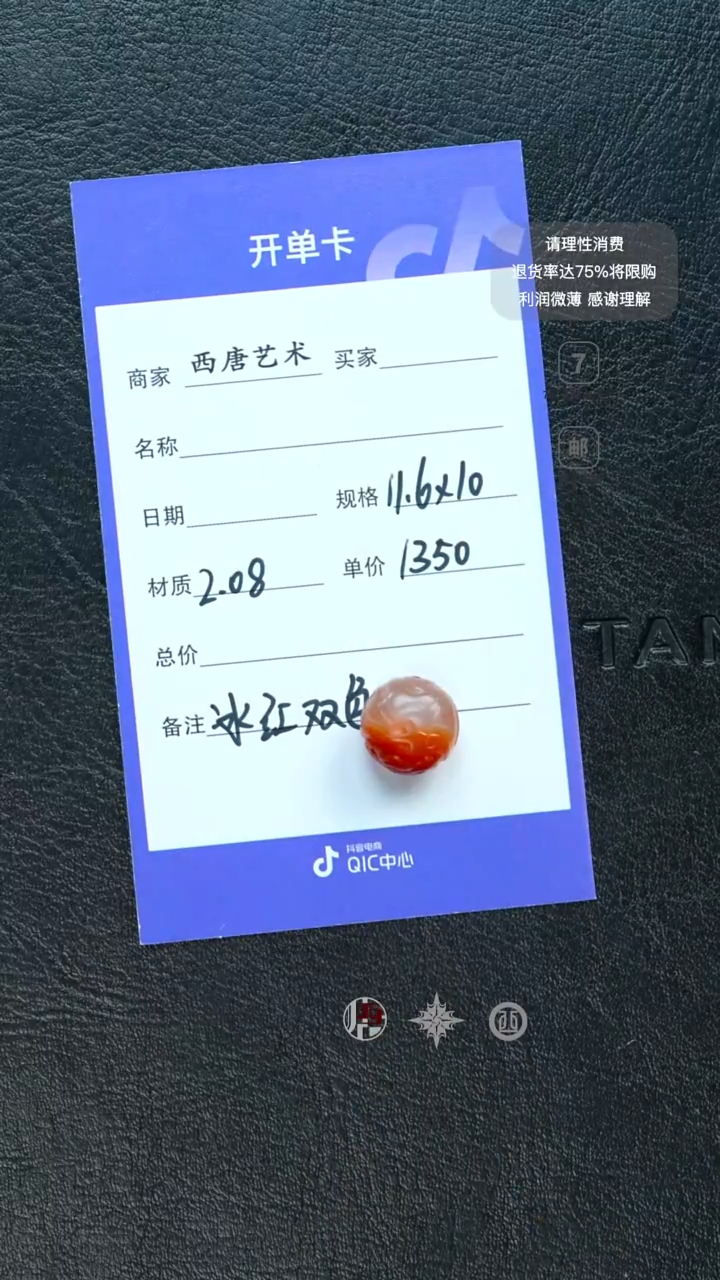 开单卡
请理性消费
退货率达75%将限购
利润微薄 感谢理解
商家 西唐艺术 买家
7
名称
邮
日期 规格 11.6x10
材质 2.08 单价 1350
TAN
总价
备注 冰红双色
抖音电商
QIC中心
西